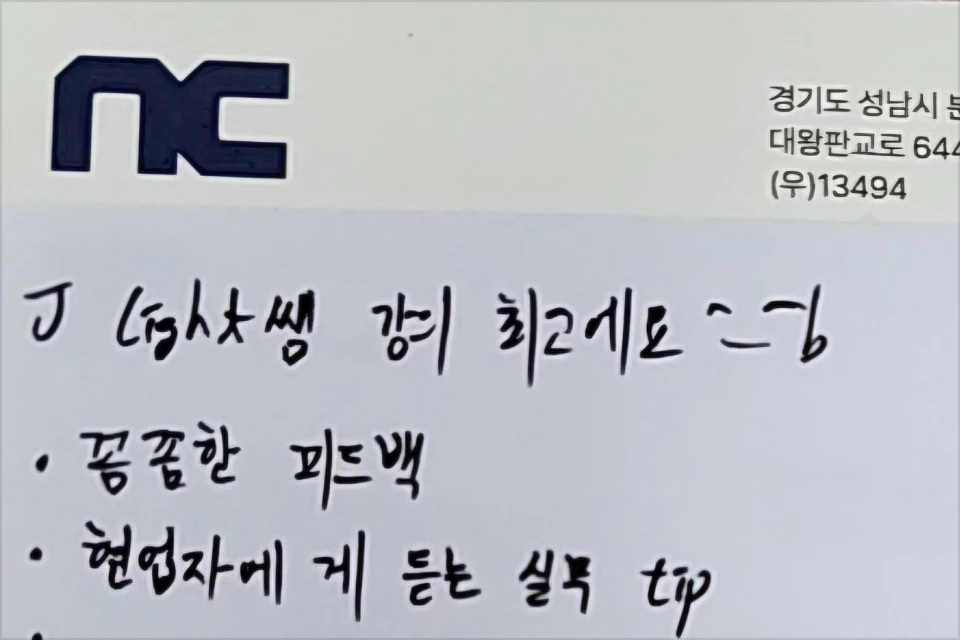 nc
경기도 성남시 분
대왕판교로 644
(우)13494
J Light쌤 강의 최고에요 ^_^b
• 꼼꼼한 피드백
• 현업자에게 듣는 실무 tip